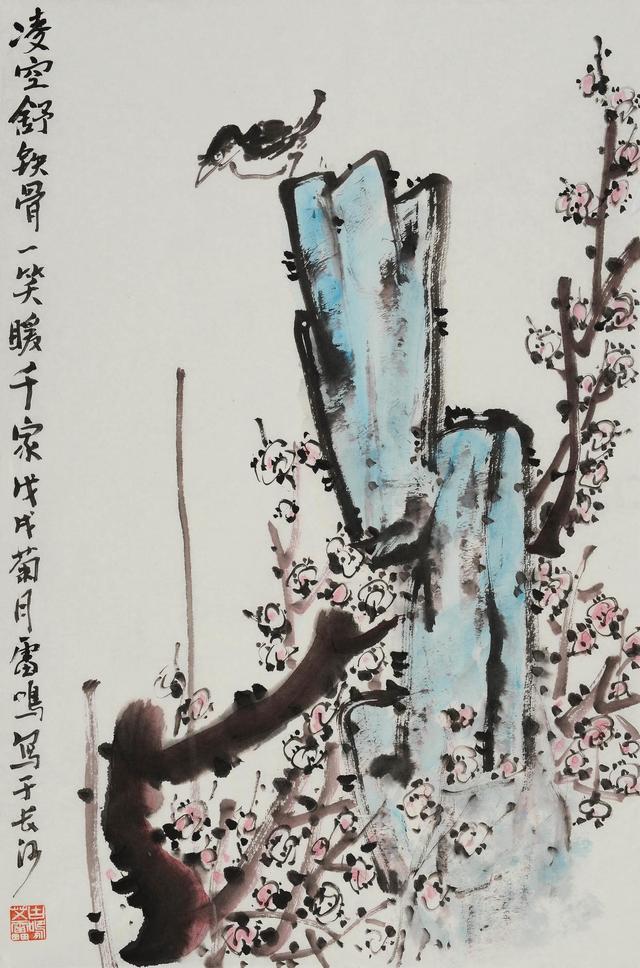 凌空舒铁骨一笑暖千家戊戌菊月雷鸣写于长沙